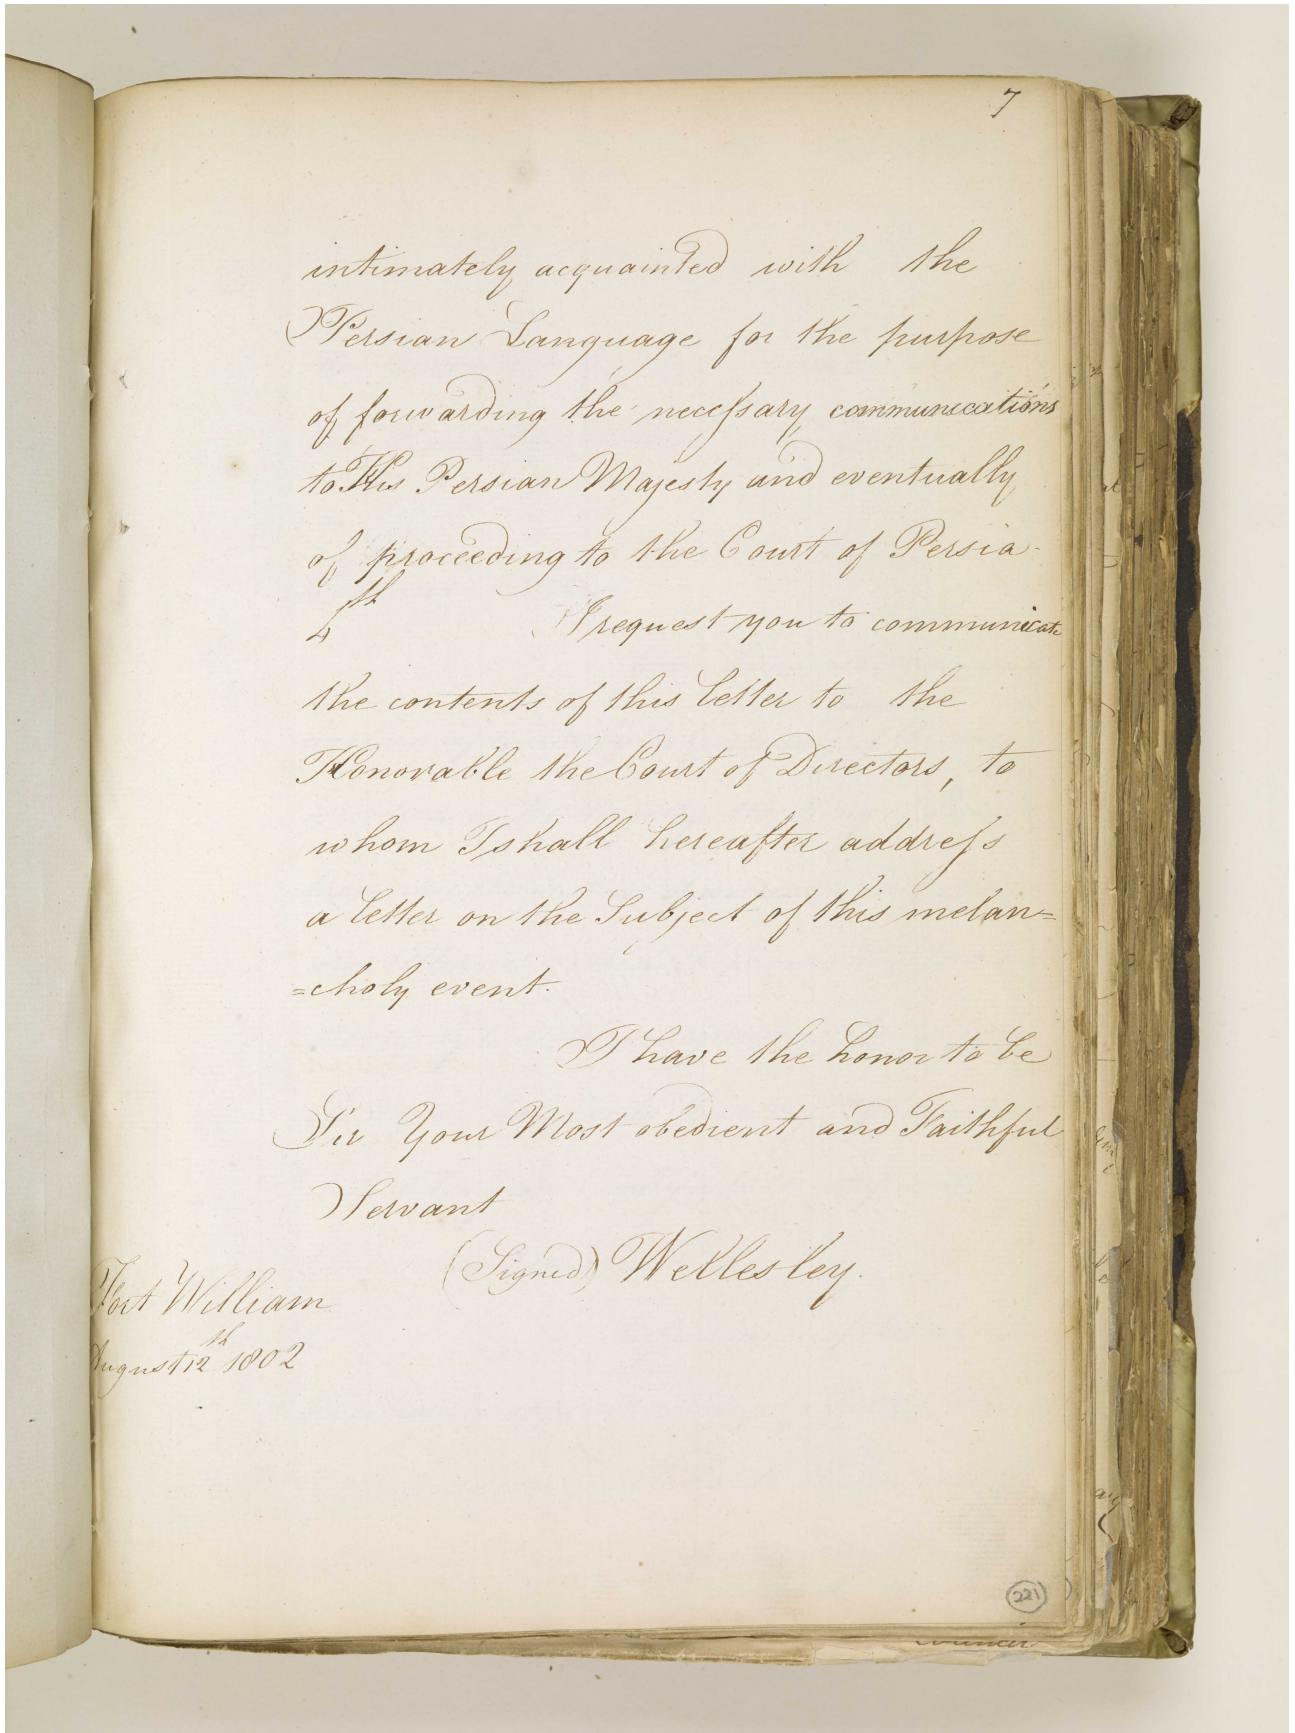 7
intimately acquainted with the
Persian Language for the purpose
of forwarding the necessary communications
to His Persian Majesty and eventually
of proceeding to the Court of Persia.
4th I request you to communicate
the contents of this letter to the
Honorable the Court of Directors, to
whom I shall hereafter address
a letter on the Subject of this melan=
=choly event.
I have the honor to be
Sir Your Most obedient and Faithful
Servant
(Signed) Wellesley.
Fort William
August 12th 1802
221